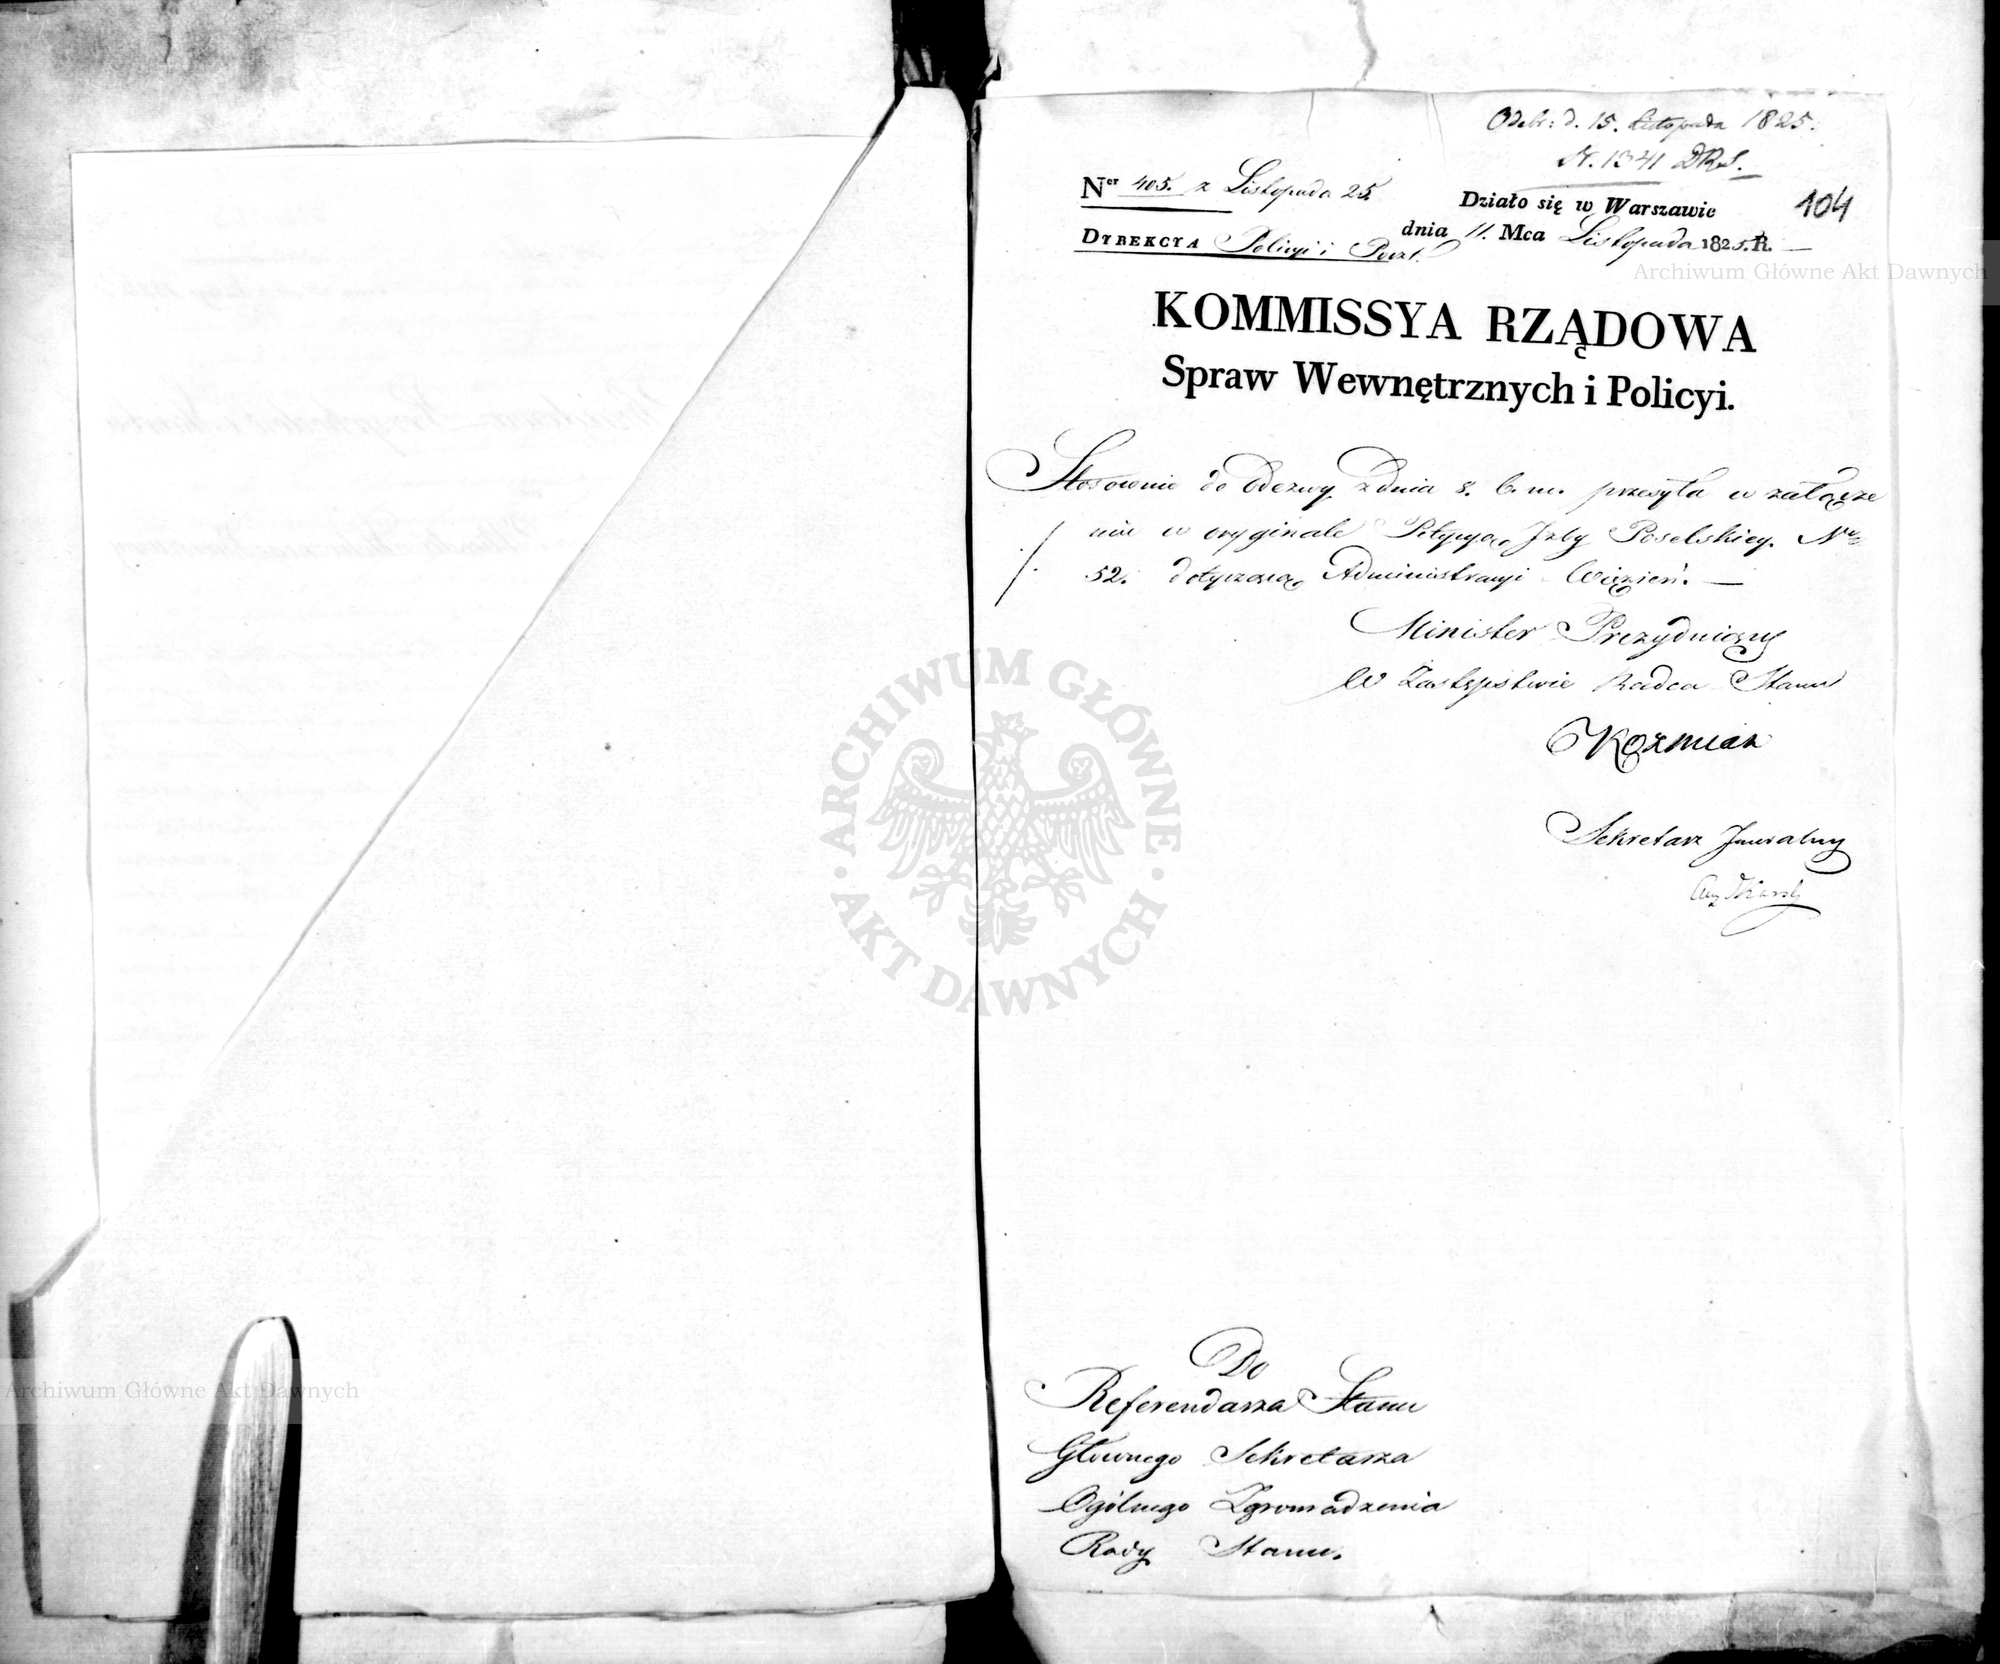 Odebr: d. 15. Listopada 1825.
N. 1341 DRS.
104
Ner 405. z Listopada 25.
Działo się w Warszawie
dnia 11. Mca Listopada 1825. R.
DYREKCYA Policyi i Poczt.
KOMMISSYA RZĄDOWA
Spraw Wewnętrznych i Policyi.
Stosownie do Odezwy z dnia 8. b. m. przesyła w załącze
niu w oryginale Petycyą Izby Poselskiey Nro
52. dotyczącą Administracyi Więzień. —
Minister Prezyduiący
W Zastępstwie Radca Stanu
Koźmian
Sekretarz Jeneralny
Do
Referendarza Stanu
Głównego Sekretarza
Ogólnego Zgromadzenia
Rady Stanu.
ARCHIWUM GŁÓWNE AKT DAWNYCH
Archiwum Główne Akt Dawnych
Archiwum Główne Akt Dawnych